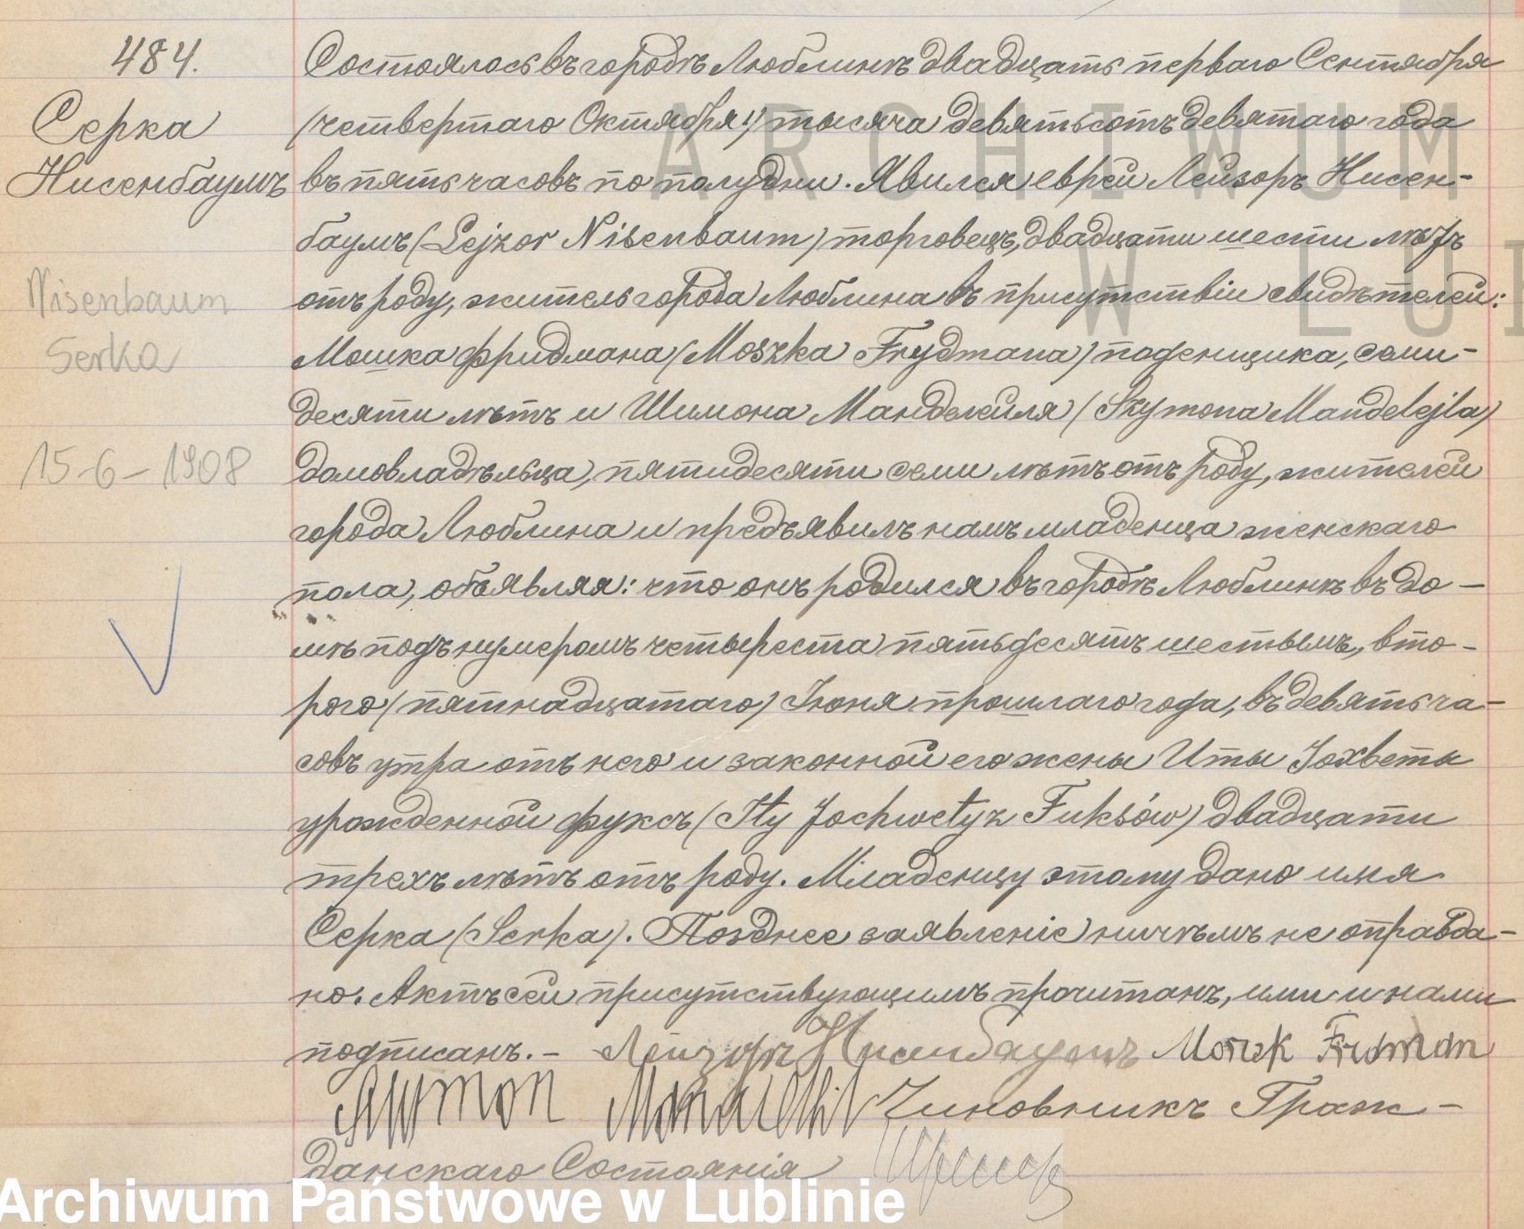 484.
Серка
Нисенбаумъ
Nisenbaum
Serka
15-6-1908
Состоялось въ городѣ Люблинѣ двадцать перваго Сентября
(четвертаго Октября) тысяча девятьсотъ девятаго года
въ пять часовъ по полудни. Явился еврей Лейзоръ Нисен-
баумъ (Lejzor Nisenbaum) торговецъ, двадцати шести лѣтъ
отъ роду, житель города Люблина въ присутствіи свидѣтелей:
Мошка Фридмана (Moszka Frydmana) поденщика, семи-
десяти лѣтъ и Шимона Манделейля (Szymona Mandelejla)
домовладѣльца, пятидесяти семи лѣтъ отъ роду, жителей
города Люблина и предъявилъ намъ младенца женскаго
пола, объявляя: что онъ родился въ городѣ Люблинѣ въ до-
мѣ подъ нумеромъ четыреста пятьдесятъ шестымъ, вто-
рого (пятнадцатаго) Іюня прошлаго года, въ девять ча-
совъ утра отъ него и законной его жены Иты Іохветы
урожденной Фуксъ (Ity Jochwetyz Fuksów) двадцати
трехъ лѣтъ отъ роду. Младенцу этому дано имя
Серка (Serka). Позднее заявленіе ничѣмъ не оправда-
но. Актъ сей присутствующимъ прочитанъ, ими и нами
подписанъ.- Лейзоръ Нисенбаумъ Moszk Fridman
Szymon Чиновникъ Граж-
данскаго Состоянія
ARCHIWUM
W LU
Archiwum Państwowe w Lublinie